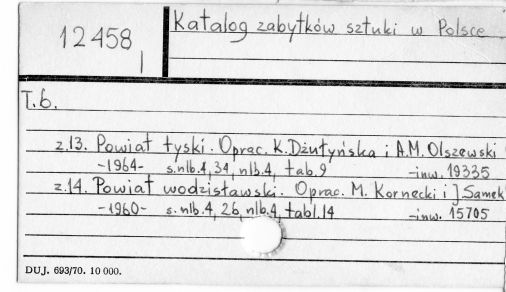 12458
Katalog zabytków sztuki w Polsce
I
T.6.
z.13. Powiat tyski. Oprac. K.Dżułyńska i A.M. Olszewski
-1964- s.nlb.4, 34, nlb.4, tab.9 -inw. 19335
z.14. Powiat wodzisławski. Oprac. M. Kornecki i J Samek
-1960- s.nlb.4, 26, nlb.4, tabl.14 -inw. 15705
DUJ. 693/70. 10 000.